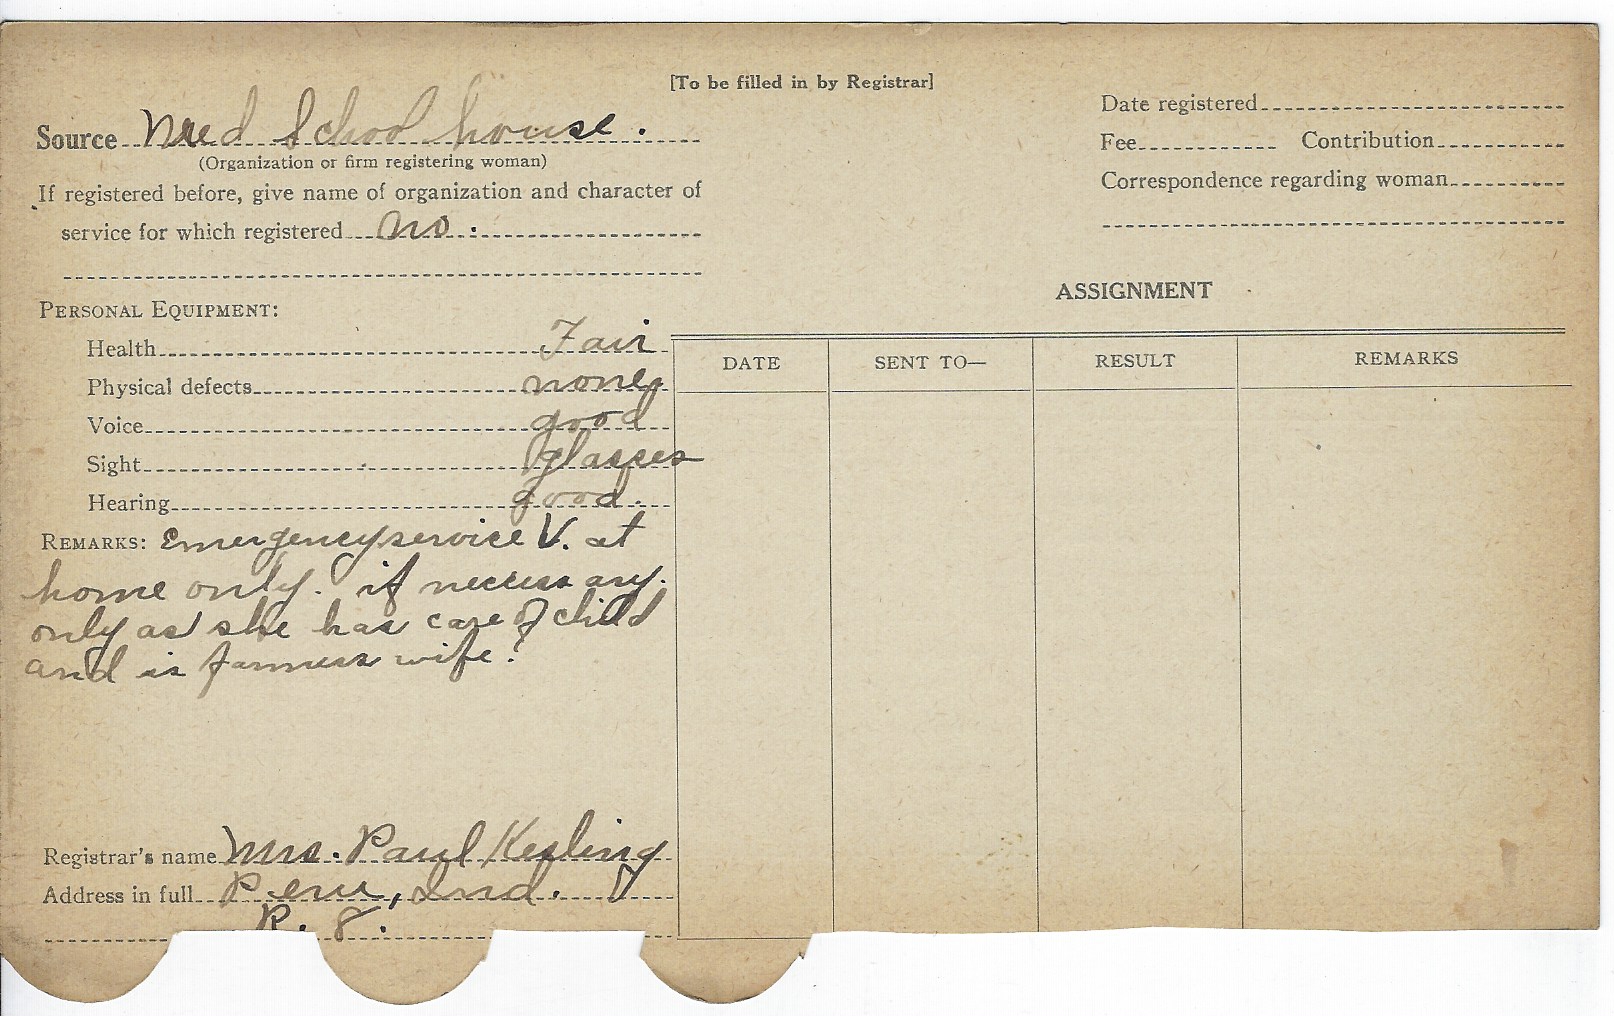 [To be filled in by Registrar]
Source School house.
(Organization or firm registering woman)
If registered before, give name of organization and character of
service for which registered no.
PERSONAL EQUIPMENT:
Health Fair
Physical defects none
Voice good
Sight glasses
Hearing good.
REMARKS: Emergency service V. at
home only. if necessary.
only as she has care of child
and is farmers wife.
Registrar's name Mrs. Paul Kesling
Address in full Peru, Ind.
R. 8.
Date registered
Fee Contribution
Correspondence regarding woman
ASSIGNMENT
DATE SENT TO— RESULT REMARKS